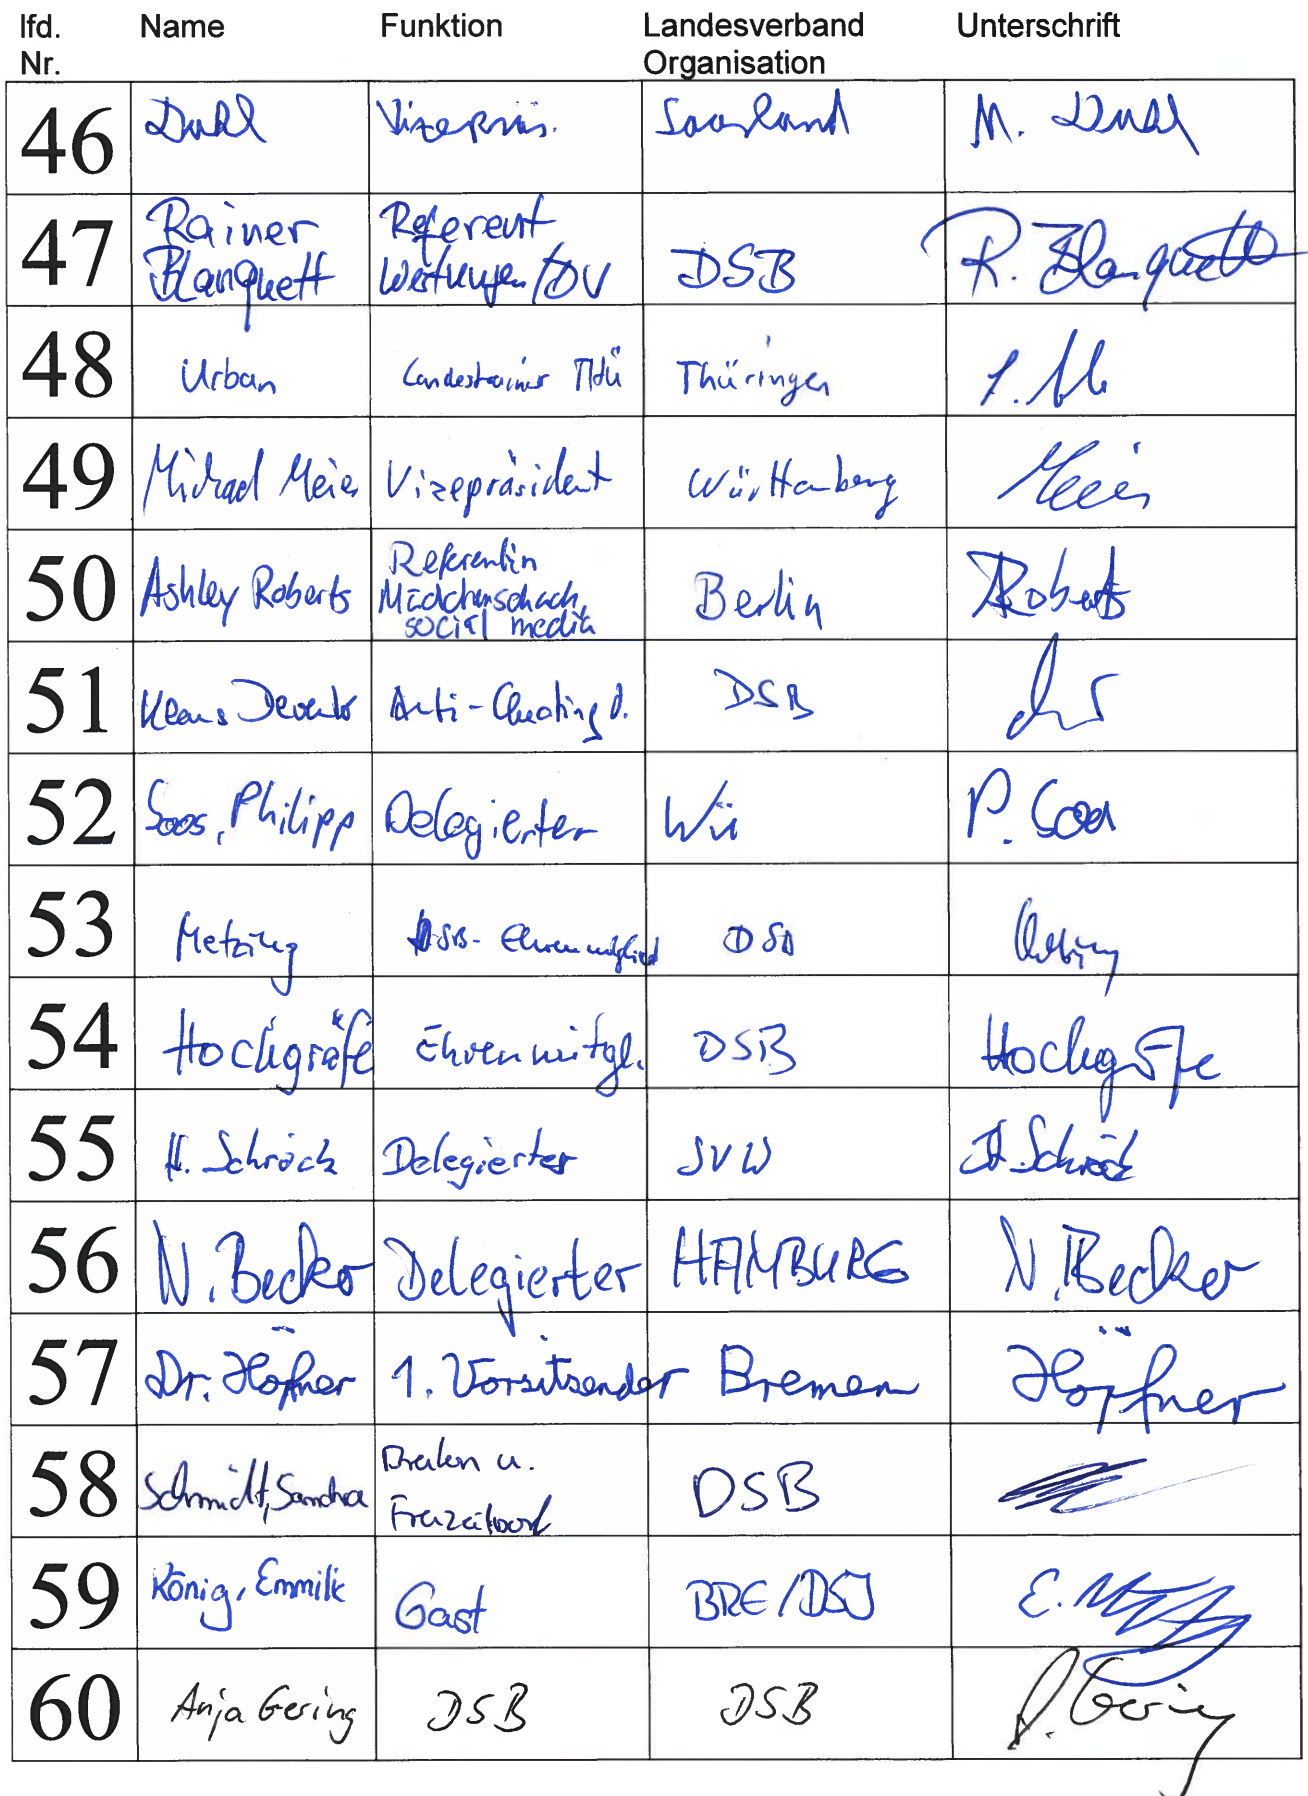 lfd. Name Funktion Landesverband Unterschrift
Nr. Organisation
46 Dahl Vizepräs. Saarland M. Dahl
47 Rainer Referent
Blanquett Wertungen/DV DSB R. Blanquett
48 Urban Landestrainer Thü Thüringen
49 Michael Meier Vizepräsident Württemberg Meier
50 Ashley Roberts Referentin Berlin Roberts
Mädchenschach,
social media
51 Klaus Deventer Anti-Cheating DSB
52 Soos, Philipp Delegierter Wü P. Soos
53 Metzing DSB-Ehrenmitglied DSB
54 Hochgräfe Ehrenmitgl. DSB Hochgräfe
55 H. Schröck Delegierter SVW H. Schröck
56 N. Becker Delegierter HAMBURG N. Becker
57 Dr. Höpfner 1. Vorsitzender Bremen Höpfner
58 Schmidt, Sandra Breiten u. DSB
Freizeitsport
59 König, Emmilie Gast BRE/DSJ E.
60 Anja Gering DSB DSB A. Gering